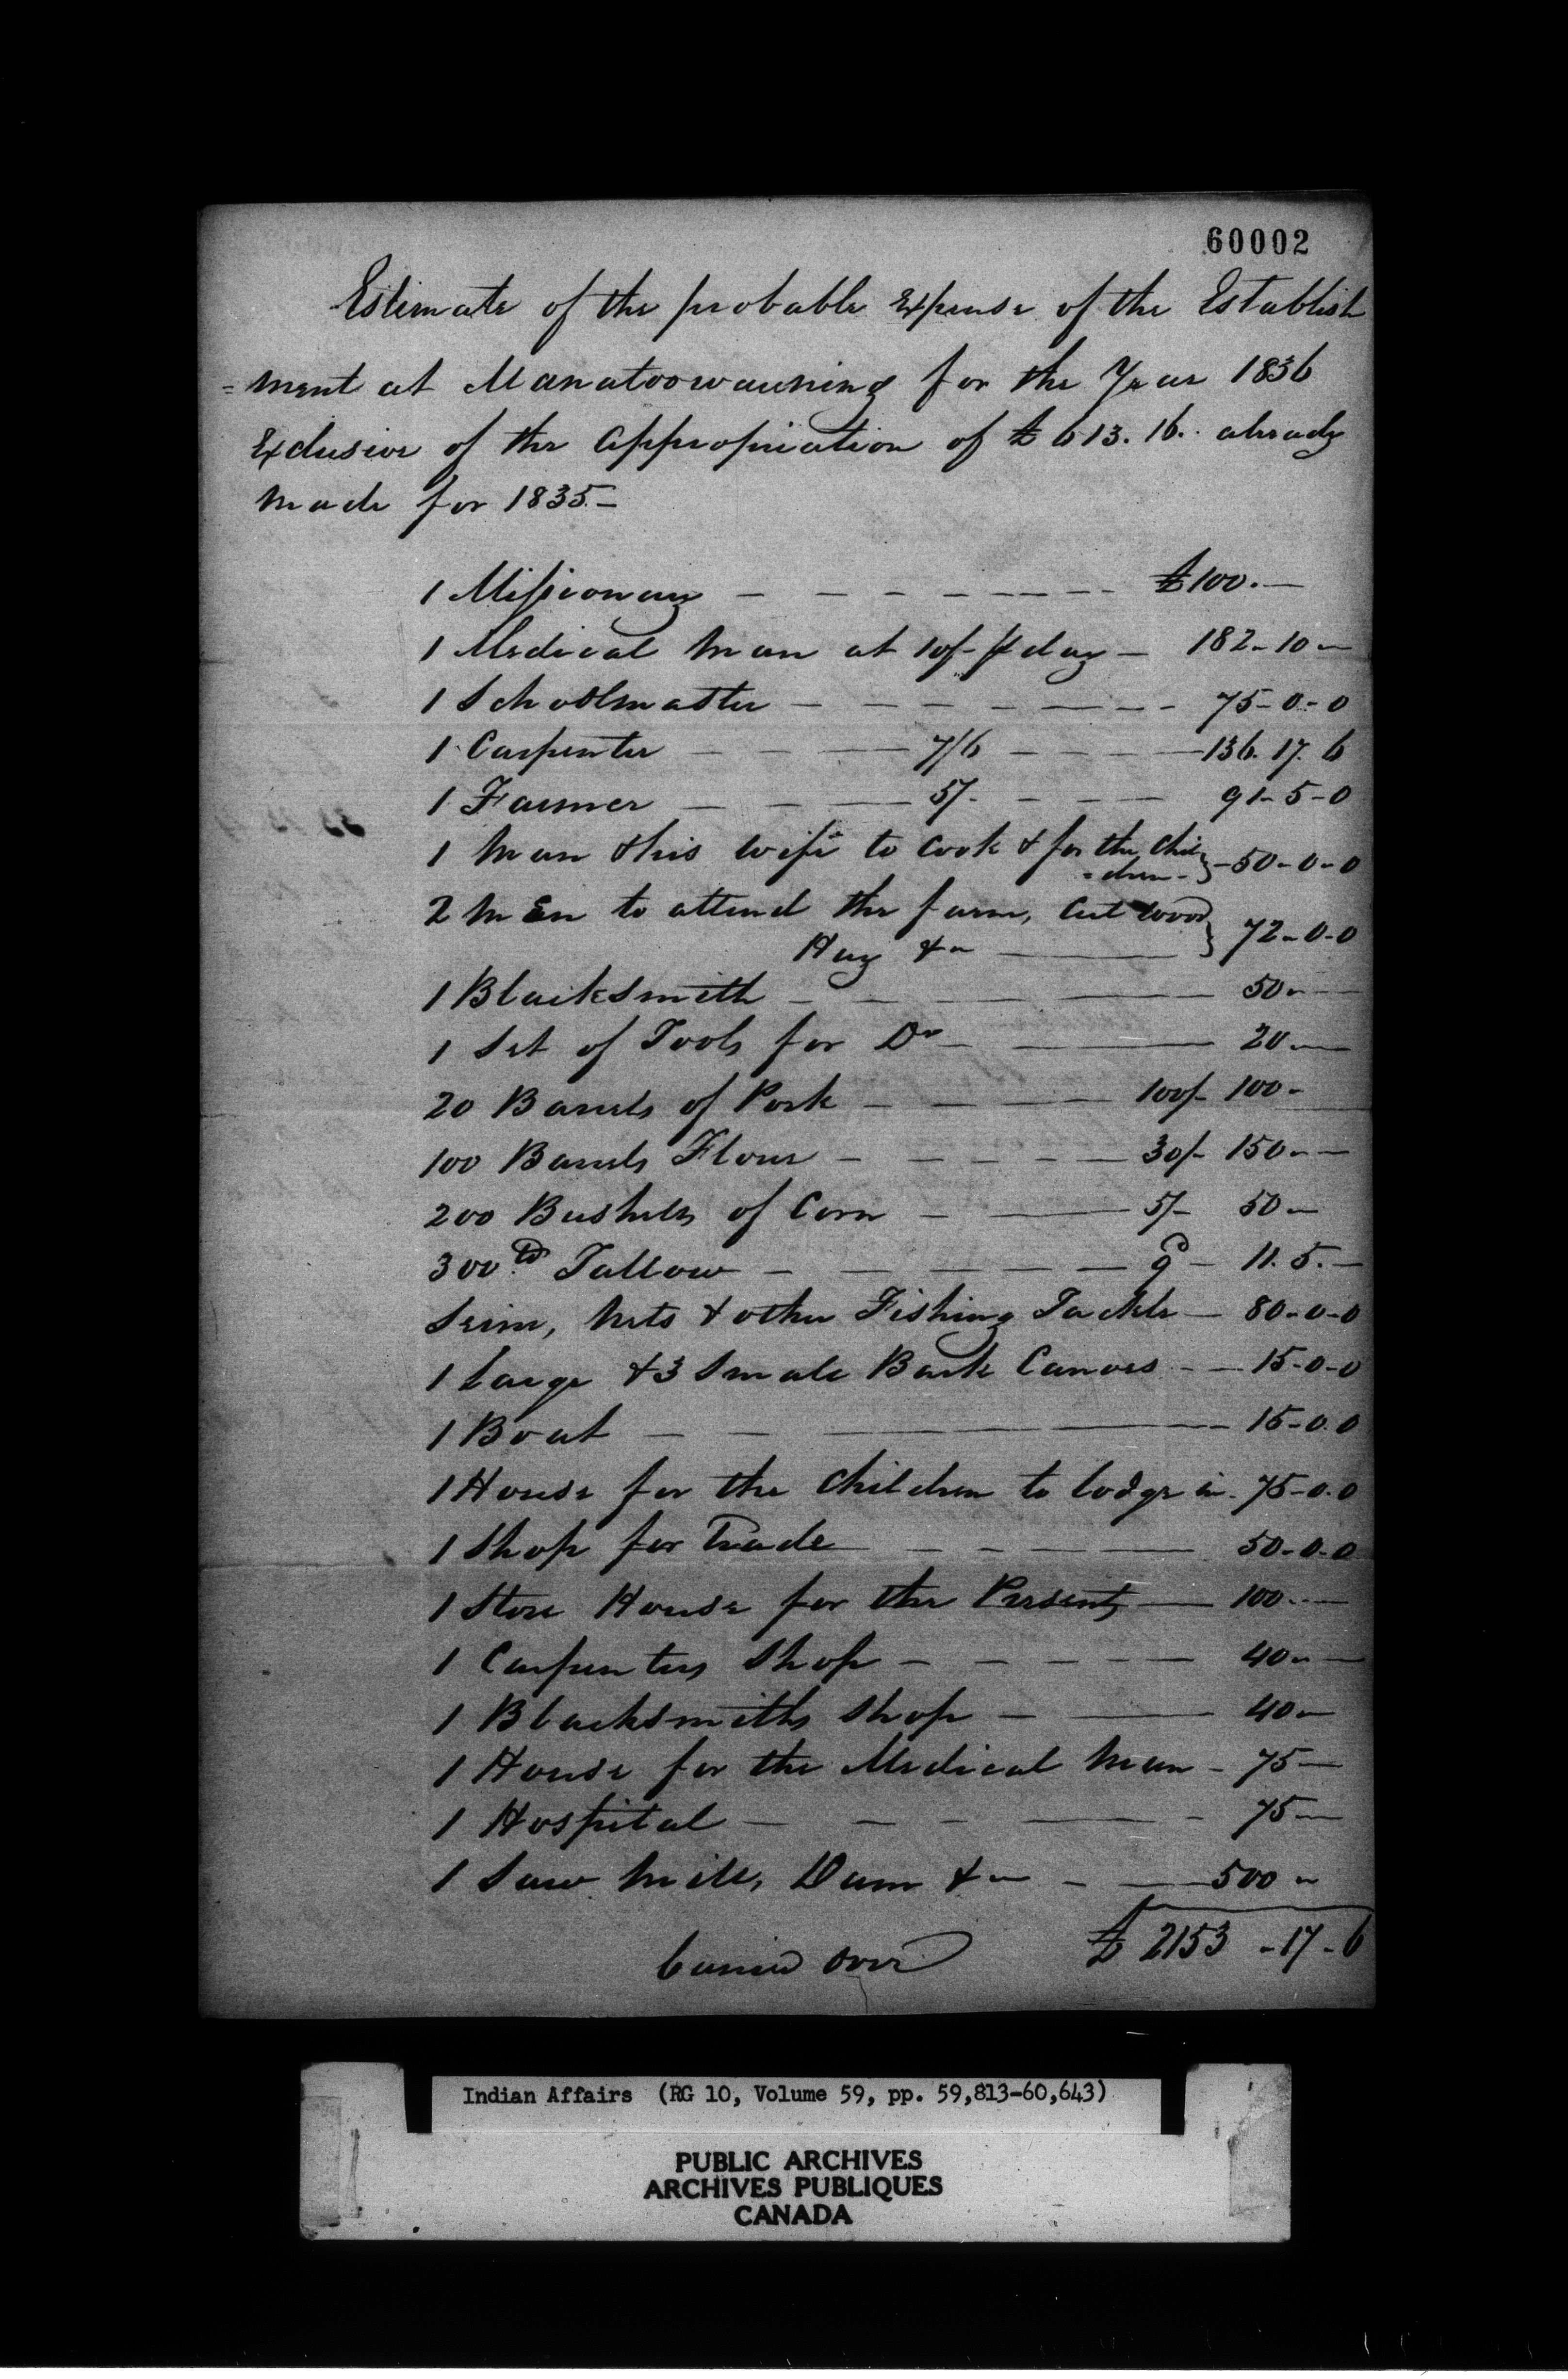 60002
Estimate of the probable Expense of the Establish
=ment at Manatoowauning for the Year 1836
Exclusive of the Appropriation of £613.16.. already
made for 1835.—
1 Missionary — — — — — — — £100.—
1 Medical Man at 10/- p day — 182-10-
1 Schoolmaster — — — — — — — 75-0-0
1 Carpenter — — — 7/6 — — — 136.17.6
1 Farmer — — — 5/- — — — 91-5-0
1 Man & his wife to Cook & for the Chil } -50-0-0
=dren-
2 Men to attend the farm, Cut wood }
Hay &c — 72-0-0
1 Blacksmith — — — 50-—
1 Set of Tools for Do — — 20-—
20 Barrels of Pork — — — — 100/- 100-
100 Barrels Flour — — — — — 30/- 150-—
200 Bushels of Corn — — 5/- 50-
300 lb Tallow — — — — — 9d - 11.5.—
Seine, Nets & other Fishing Tackle — 80-0-0
1 Large & 3 Small Bark Canoes — — 15-0-0
1 Boat — — — — 15-0.0
1 House for the Children to lodge in - 75-0.0
1 Shop for Trade — — — — — 50-0-0
1 Store House for the Presents — 100-—
1 Carpenters Shop — — — — — 40-—
1 Blacksmiths Shop — — 40-
1 House for the Medical Man - 75—
1 Hospital — — — — - 75—
1 Saw Mill, Dam &c — — 500-
Carried over £2153-17-6
Indian Affairs (RG 10, Volume 59, pp. 59,813-60,643)
PUBLIC ARCHIVES
ARCHIVES PUBLIQUES
CANADA